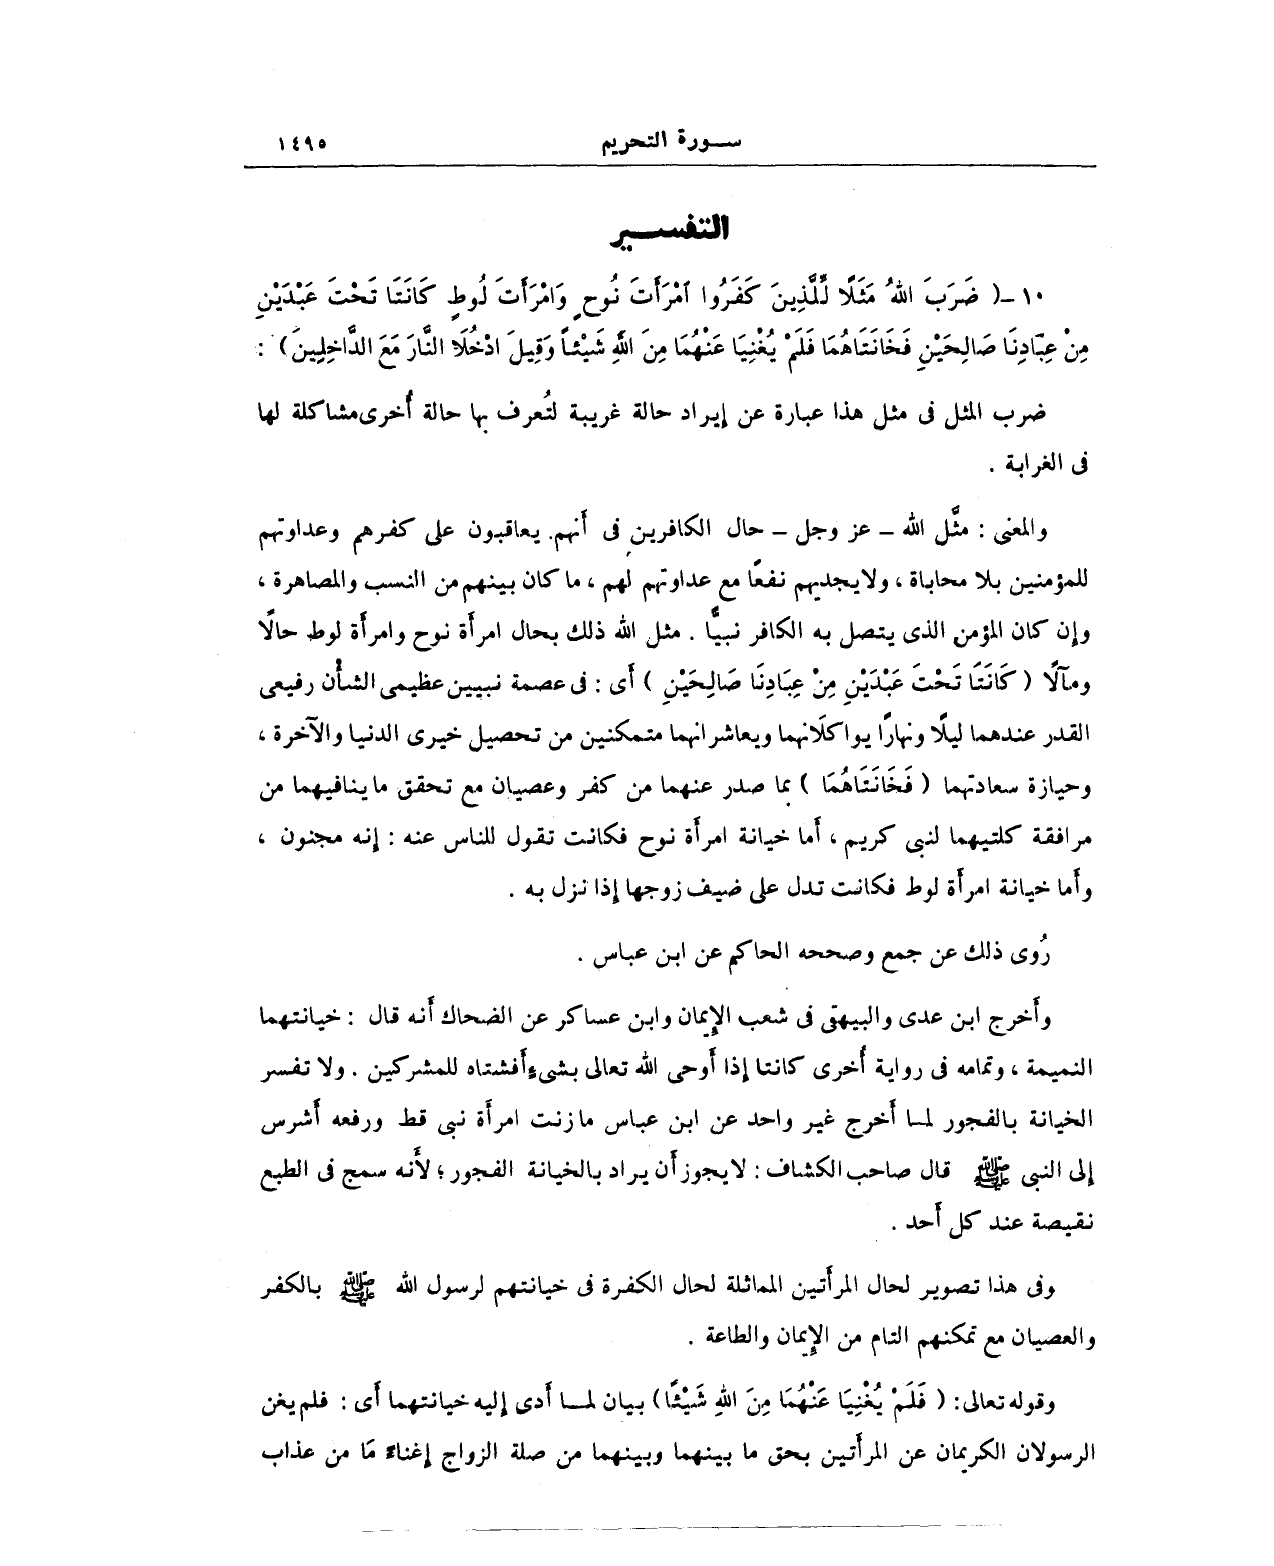 سورة التحريم ١٤٩٥
التفسير
١٠ـ ( ضَرَبَ اللهُ مَثَلًا لِّلَّذِينَ كَفَرُوا امْرَأَتَ نُوحٍ وَامْرَأَتَ لُوطٍ كَانَتَا تَحْتَ عَبْدَيْنِ
مِنْ عِبَادِنَا صَالِحَيْنِ فَخَانَتَاهُمَا فَلَمْ يُغْنِيَا عَنْهُمَا مِنَ اللهِ شَيْئاً وَقِيلَ ادْخُلَا النَّارَ مَعَ الدَّاخِلِينَ ) :
ضرب المثل فى مثل هذا عبارة عن إيراد حالة غريبة لتُعرف بها حالة أُخرى مشاكلة لها
فى الغرابة .
والمعنى : مثَّل الله – عز وجل – حال الكافرين فى أَنهم يعاقبون على كفرهم وعداوتهم
للمؤمنين بلا محاباة ، ولايجديهم نفعًا مع عداوتهم لهم ، ما كان بينهم من النسب والمصاهرة ،
وإن كان المؤمن الذى يتصل به الكافر نبيًّا . مثل الله ذلك بحال امرأَة نوح وامرأَة لوط حالًا
ومآلًا ( كَانَتَا تَحْتَ عَبْدَيْنِ مِنْ عِبَادِنَا صَالِحَيْنِ ) أَى : فى عصمة نبيين عظيمى الشأْن رفيعى
القدر عندهما ليلًا ونهارًا يواكلانهما ويعاشرانهما متمكنين من تحصيل خيرى الدنيا والآخرة ،
وحيازة سعادتهما ( فَخَانَتَاهُمَا ) بما صدر عنهما من كفر وعصيان مع تحقق ماينافيهما من
مرافقة كلتيهما لنبى كريم ، أَما خيانة امرأَة نوح فكانت تقول للناس عنه : إنه مجنون ،
وأَما خيانة امرأَة لوط فكانت تدل على ضيف زوجها إذا نزل به .
رُوى ذلك عن جمع وصححه الحاكم عن ابن عباس .
وأَخرج ابن عدى والبيهقى فى شعب الإِيمان وابن عساكر عن الضحاك أَنه قال : خيانتهما
النميمة ، وتمامه فى رواية أُخرى كانتا إذا أَوحى الله تعالى بشىء أَفشتاه للمشركين . ولا تفسر
الخيانة بالفجور لما أَخرج غير واحد عن ابن عباس مازنت امرأَة نبى قط ورفعه أَشرس
إلى النبى ﷺ قال صاحب الكشاف : لايجوز أَن يراد بالخيانة الفجور ؛ لأَنه سمج فى الطبع
نقيصة عند كل أَحد .
وفى هذا تصوير لحال المرأَتين المماثلة لحال الكفرة فى خيانتهم لرسول الله ﷺ بالكفر
والعصيان مع تمكنهم التام من الإِيمان والطاعة .
وقوله تعالى: ( فَلَمْ يُغْنِيَا عَنْهُمَا مِنَ اللهِ شَيْئًا ) بيان لما أدى إليه خيانتهما أَى : فلم يغن
الرسولان الكريمان عن المرأَتين بحق ما بينهما وبينهما من صلة الزواج إغناءً مَا من عذاب